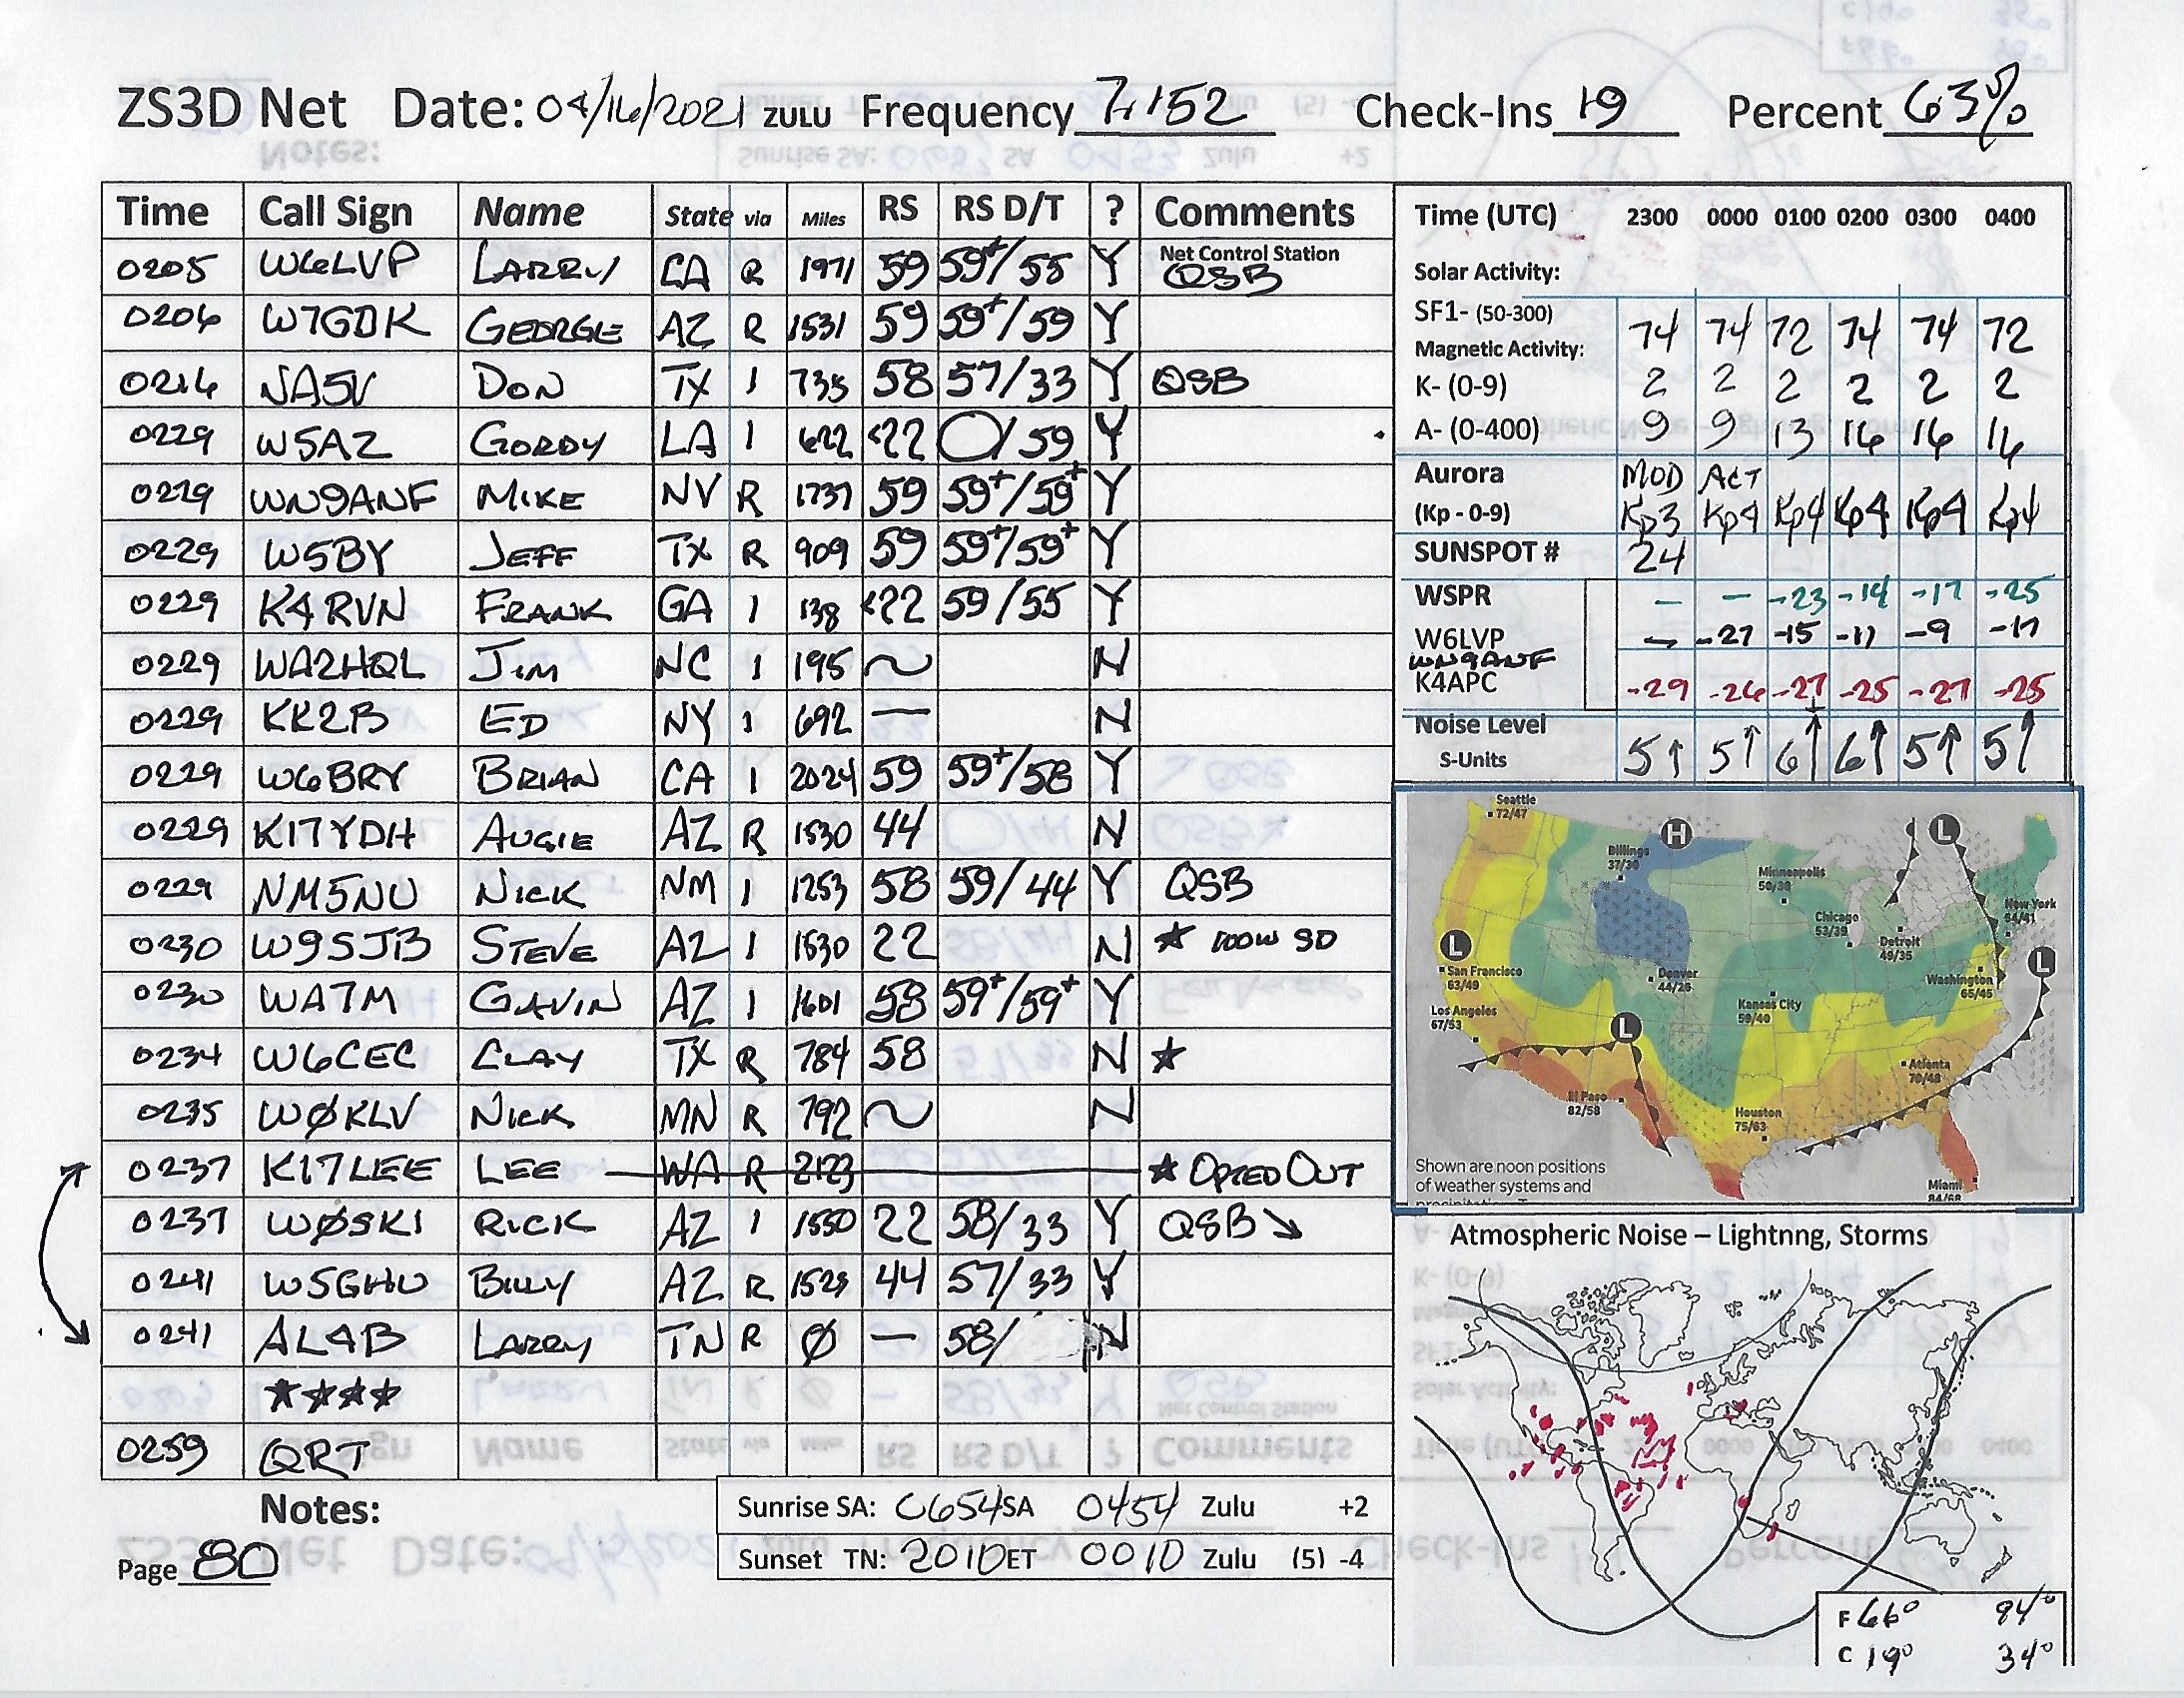 ZS3D Net Date: 04/16/2021 ZULU Frequency 7.152 Check-Ins 19 Percent 63%
Time Call Sign Name State via Miles RS RS D/T ? Comments
0205 W6LVP LARRY CA R 1971 59 59+/55 Y Net Control Station QSB
0206 W7GDK GEORGE AZ R 1531 59 59+/59 Y
0216 NA5V DON TX I 735 58 57/33 Y QSB
0229 W5AZ GORDY LA I 622 <22 0/59 Y
0229 WN9ANF MIKE NV R 1737 59 59+/59+ Y
0229 W5BY JEFF TX R 909 59 59+/59+ Y
0229 K4RVN FRANK GA I 138 <22 59/55 Y
0229 WA2HQL JIM NC I 195 ~ N
0229 KK2B ED NY I 692 — N
0229 W6BRY BRIAN CA I 2024 59 59+/58 Y
0229 KI7YDH AUGIE AZ R 1530 44 N
0229 NM5NU NICK NM I 1253 58 59/44 Y QSB
0230 W9SJB STEVE AZ I 1530 22 N ★ 100W SD
0230 WA7M GAVIN AZ I 1601 58 59+/59+ Y
0234 W6CEC CLAY TX R 784 58 N ★
0235 WØKLV NICK MN R 792 ~ N
0237 KI7LEE LEE WA R 2123 ★ OPTED OUT
0237 WØSKI RICK AZ I 1550 22 58/33 Y QSB ↘
0241 W5GHU BILLY AZ R 1529 44 57/33 Y
0241 AL4B LARRY TN R Ø — 58/ N
★★★★
0259 QRT
Notes:
Page 80
Sunrise SA: 0654 SA 0454 Zulu +2
Sunset TN: 2010 ET 0010 Zulu (5) -4
Time (UTC) 2300 0000 0100 0200 0300 0400
Solar Activity:
SF1- (50-300) 74 74 72 74 74 72
Magnetic Activity:
K- (0-9) 2 2 2 2 2 2
A- (0-400) 9 9 13 16 16 16
Aurora MOD ACT
(Kp - 0-9) Kp3 Kp4 Kp4 Kp4 Kp4 Kp4
SUNSPOT # 24
WSPR — — -23 -14 -17 -25
W6LVP — -27 -15 -11 -9 -17
WN9ANF
K4APC -29 -26 -27 -25 -27 -25
Noise Level
S-Units 5↑ 5↑ 6↑ 6↑ 5↑ 5↑
Seattle
72/47
H
L
Billings
37/30
Minneapolis
50/38
New York
54/41
Chicago
53/39
Detroit
49/35
L
San Francisco
63/49
Denver
44/26
Washington
65/45
L
Kansas City
59/40
Los Angeles
67/53
L
Atlanta
70/48
El Paso
82/58
Houston
75/63
Miami
84/68
Shown are noon positions
of weather systems and
Atmospheric Noise – Lightnng, Storms
F 66° 94°
C 19° 34°